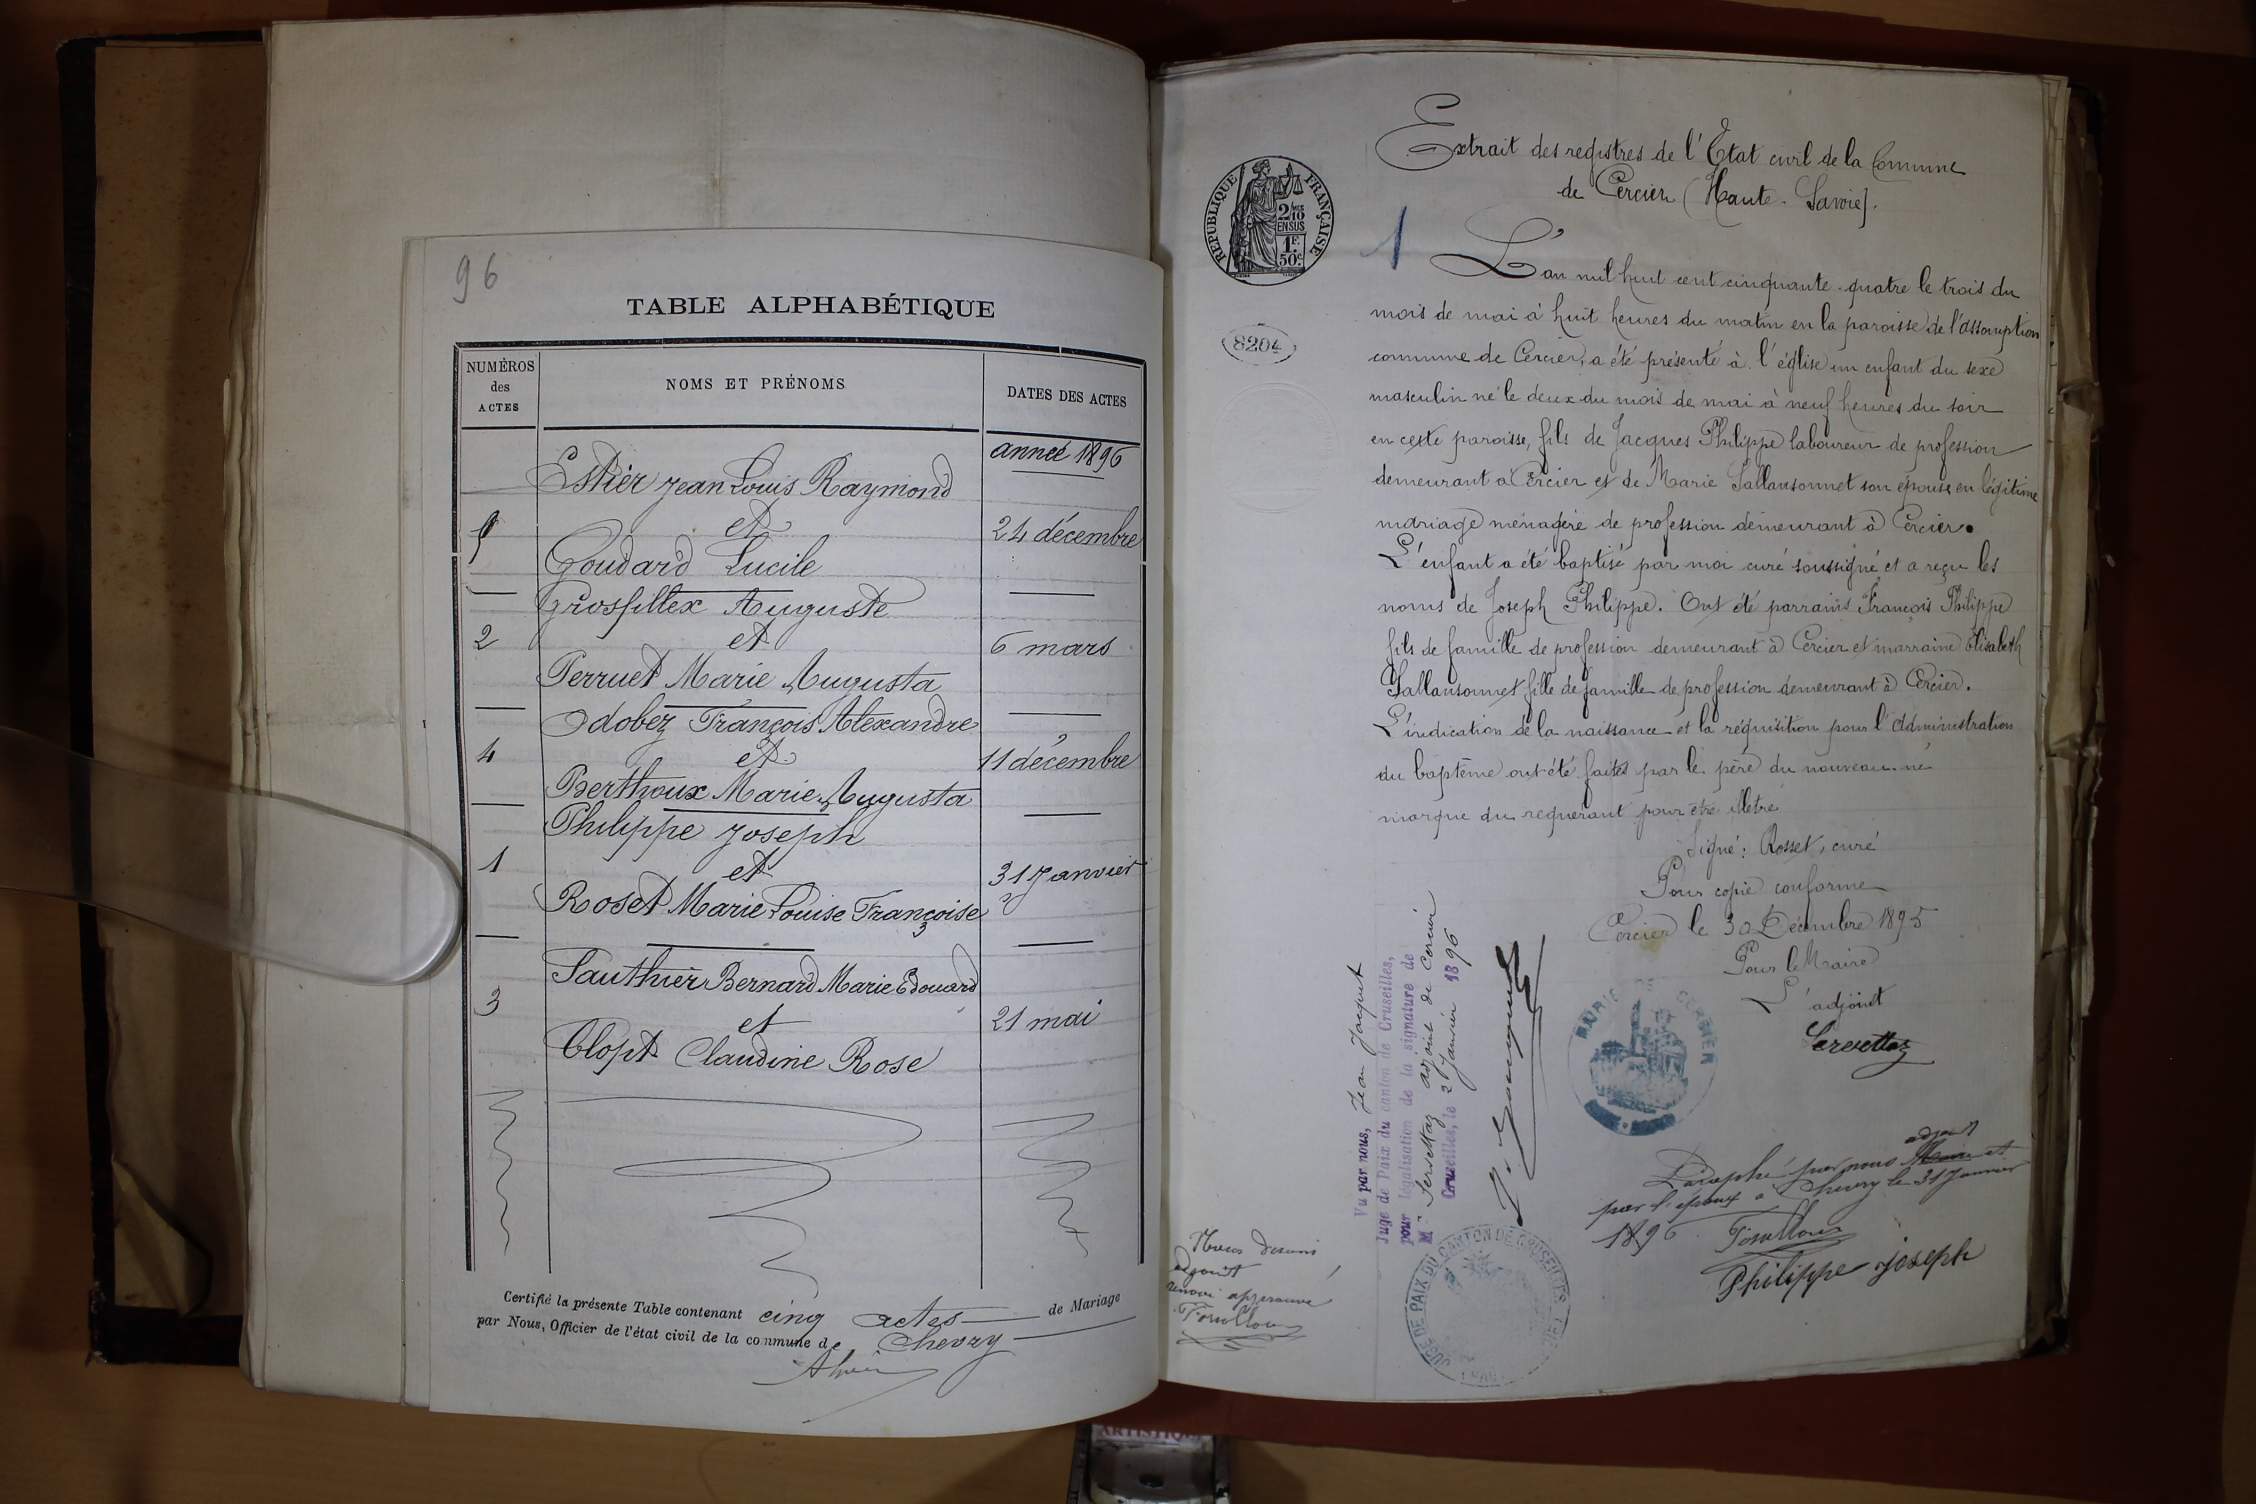 96
TABLE ALPHABÉTIQUE
NUMÉROS
des
ACTES
NOMS ET PRÉNOMS
DATES DES ACTES
année 1896
Estier Jean Louis Raymond
5
et
24 décembre
Goudard Lucile
Grosfillex Auguste
2
et
6 mars
Perruet Marie Augusta
Odobez François Alexandre
4
et
11 décembre
Berthoux Marie Augusta
Philippe Joseph
1
et
31 Janvier
Roset Marie Louise Françoise
Sauthier Bernard Marie Edouard
3
et
21 mai
Clopt Claudine Rose
Certifié la présente Table contenant cinq actes de Mariage
par Nous, Officier de l'état civil de la commune de Chevry
RÉPUBLIQUE FRANÇAISE
2/10
EN SUS
1F.
50c
8204
1
Extrait des registres de l'Etat civil de la Commune
de Cercier (Haute-Savoie).
L'an mil huit cent cinquante-quatre le trois du
mois de mai à huit heures du matin en la paroisse de l'assomption
commune de Cercier, a été présenté à l'église un enfant du sexe
masculin né le deux du mois de mai à neuf heures du soir
en cette paroisse, fils de Jacques Philippe laboureur de profession
demeurant à Cercier et de Marie Sallansonnet son épouse en légitime
mariage ménagère de profession demeurant à Cercier.
L'enfant a été baptisé par moi curé soussigné et a reçu les
noms de Joseph Philippe. Ont été parrains François Philippe
fils de famille de profession demeurant à Cercier et marraine Elisabeth
Sallansonnet fille de famille de profession demeurant à Cercier.
L'indication de la naissance et la réquisition pour l'administration
du baptême ont été faites par le père du nouveau-né
marque du requérant pour être illetré
Signé: Rosset, curé
Pour copie conforme
Cercier le 30 Décembre 1895
Pour le Maire
L'adjoint
Servettaz
MAIRIE DE CERCIER
Vu par nous, Jean Jacquet
Juge de Paix du canton de Cruseilles,
pour légalisation de la signature de
Mr Servettaz adjoint de Cercier
Cruseilles, le 2 Janvier 1896
J. Jacquet
JUGE DE PAIX DU CANTON DE CRUSEILLES
adjoint
Paraphé par nous Maire et
par l'époux à Chevry le 31 Janvier
1896
Philippe Joseph
adjoint
renvoi approuvé